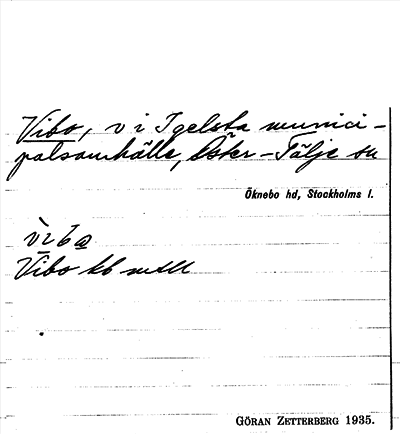 Vibo, v i Igelsta munici-
palsamhälle, Öster-Tälje sn
Öknebo hd, Stockholms l.
vìba
Vibo kb
GÖRAN ZETTERBERG 1935.